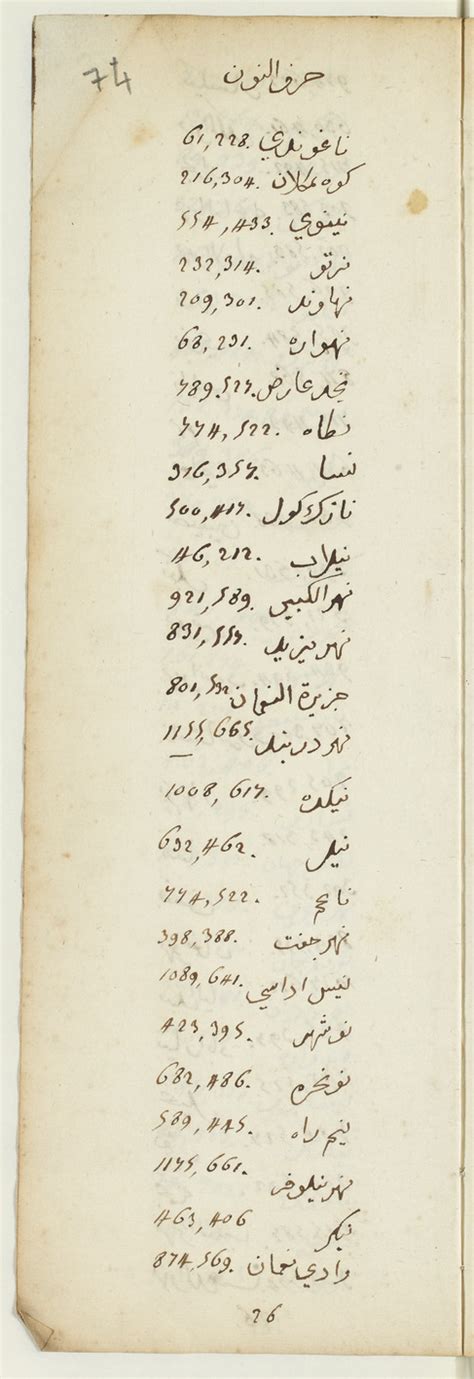 74
حرف النون
ناغوندي 61,228.
كوه نمكلان 216,304.
نينوي 554,433.
نرتو 232,314.
نهاوند 209,301.
نهواره 68,231.
نجد عارض 789,527.
نطاه 774,522.
نسا 316,357.
نازك كول 500,417.
نيلاب 46,212.
نهر الكبير 921,589.
نهر يزيد 831,557.
جزيرة النعمان 801,532
نهر دربند 1155,665.
نيكده 1008,617.
نيل 632,462.
ناعم 774,522.
نهر جفت 398,388.
نيس اداسي 1089,641.
نوشهر 423,395.
نونخره 682,486.
نيم راه 589,445.
نهر نيلوفر 1175,661.
نيكر 463,406
وادي نعمان 874,569.
26